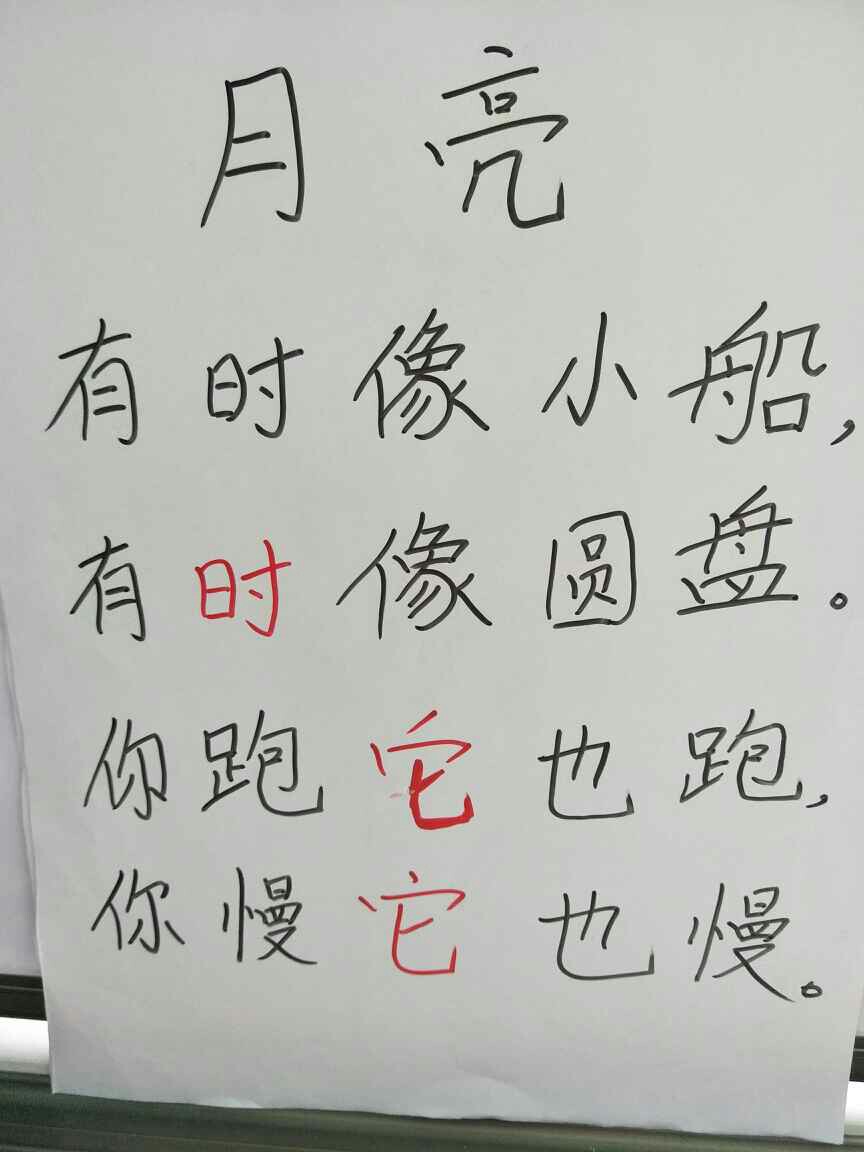 月亮
有时像小船，
有时像圆盘。
你跑它也跑，
你慢它也慢。